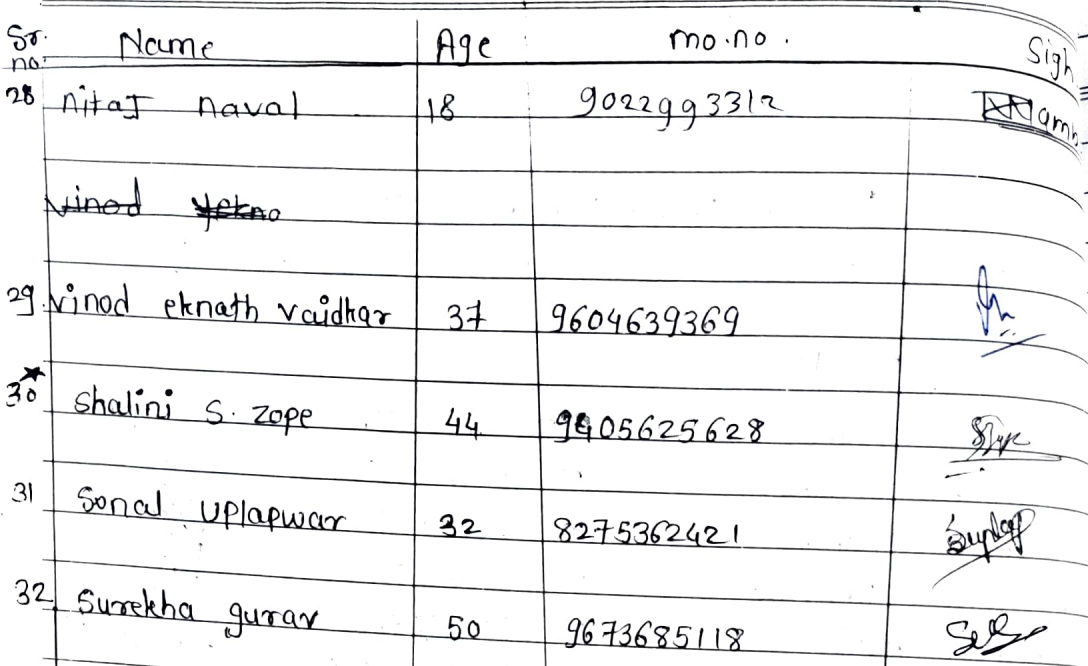 Sr. no. Name Age mo.no. Sigh
28 nitaj naval 18 9022993312
vinod yekno
29. vinod eknath vaidhar 37 9604639369
30 shalini s. zope 44 9405625628
31 sonal uplapwar 32 8275362421
32 surekha gurav 50 9673685118